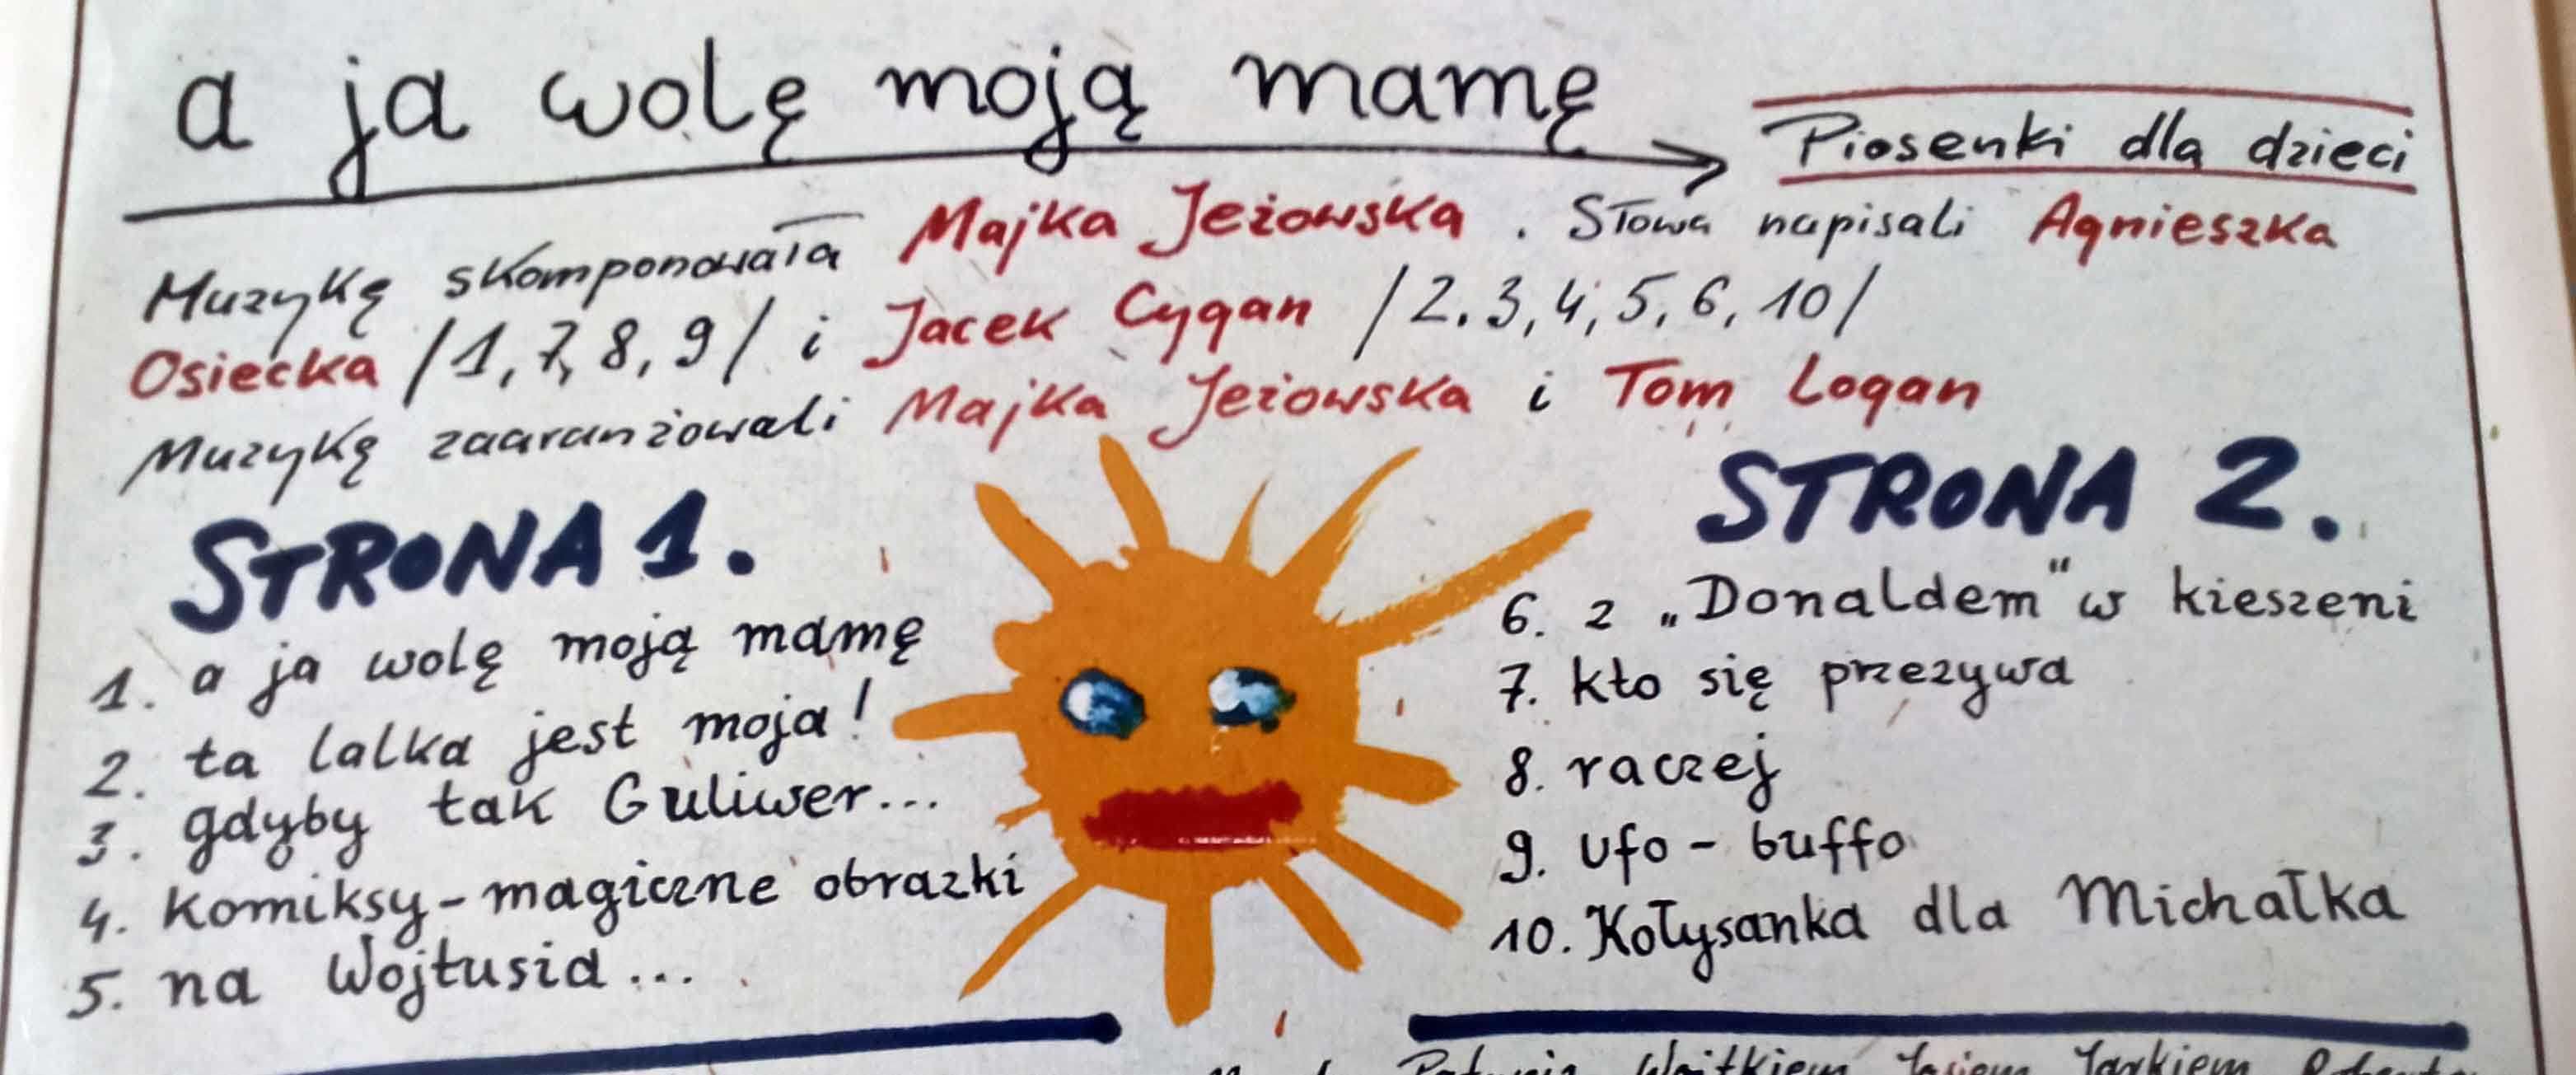 a ja wolę moją mamę
Piosenki dla dzieci
Muzykę skomponowała Majka Jeżowska. Słowa napisali Agnieszka
Osiecka /1, 7, 8, 9/ i Jacek Cygan /2.3,4,5,6,10/
Muzykę zaaranżowali Majka Jeżowska i Tom Logan
STRONA 1.
1. a ja wolę moją mamę
2. ta lalka jest moja!
3. gdyby tak Guliwer...
4. komiksy - magiczne obrazki
5. na Wojtusia...
STRONA 2.
6. z „Donaldem" w kieszeni
7. kto się przezywa
8. raczej
9. ufo - buffo
10. Kołysanka dla Michałka
Wojtkiem Jasiem Jarkiem